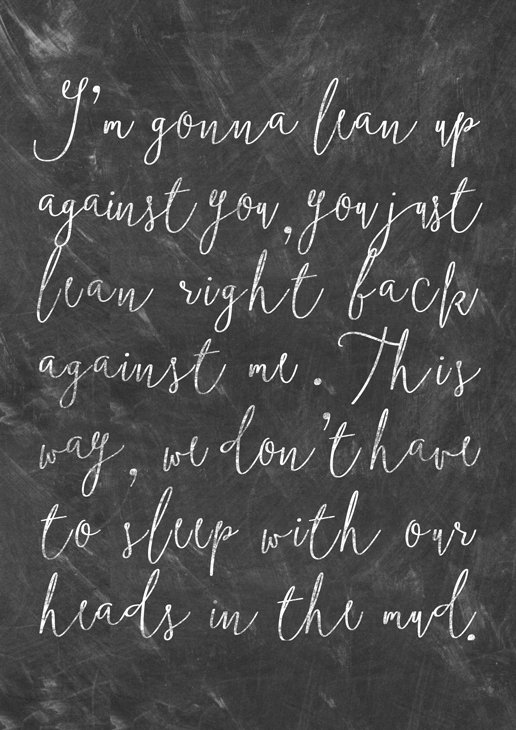 I'm gonna lean up
against you, you just
lean right back
against me. This
way, we don't have
to sleep with our
heads in the mud.